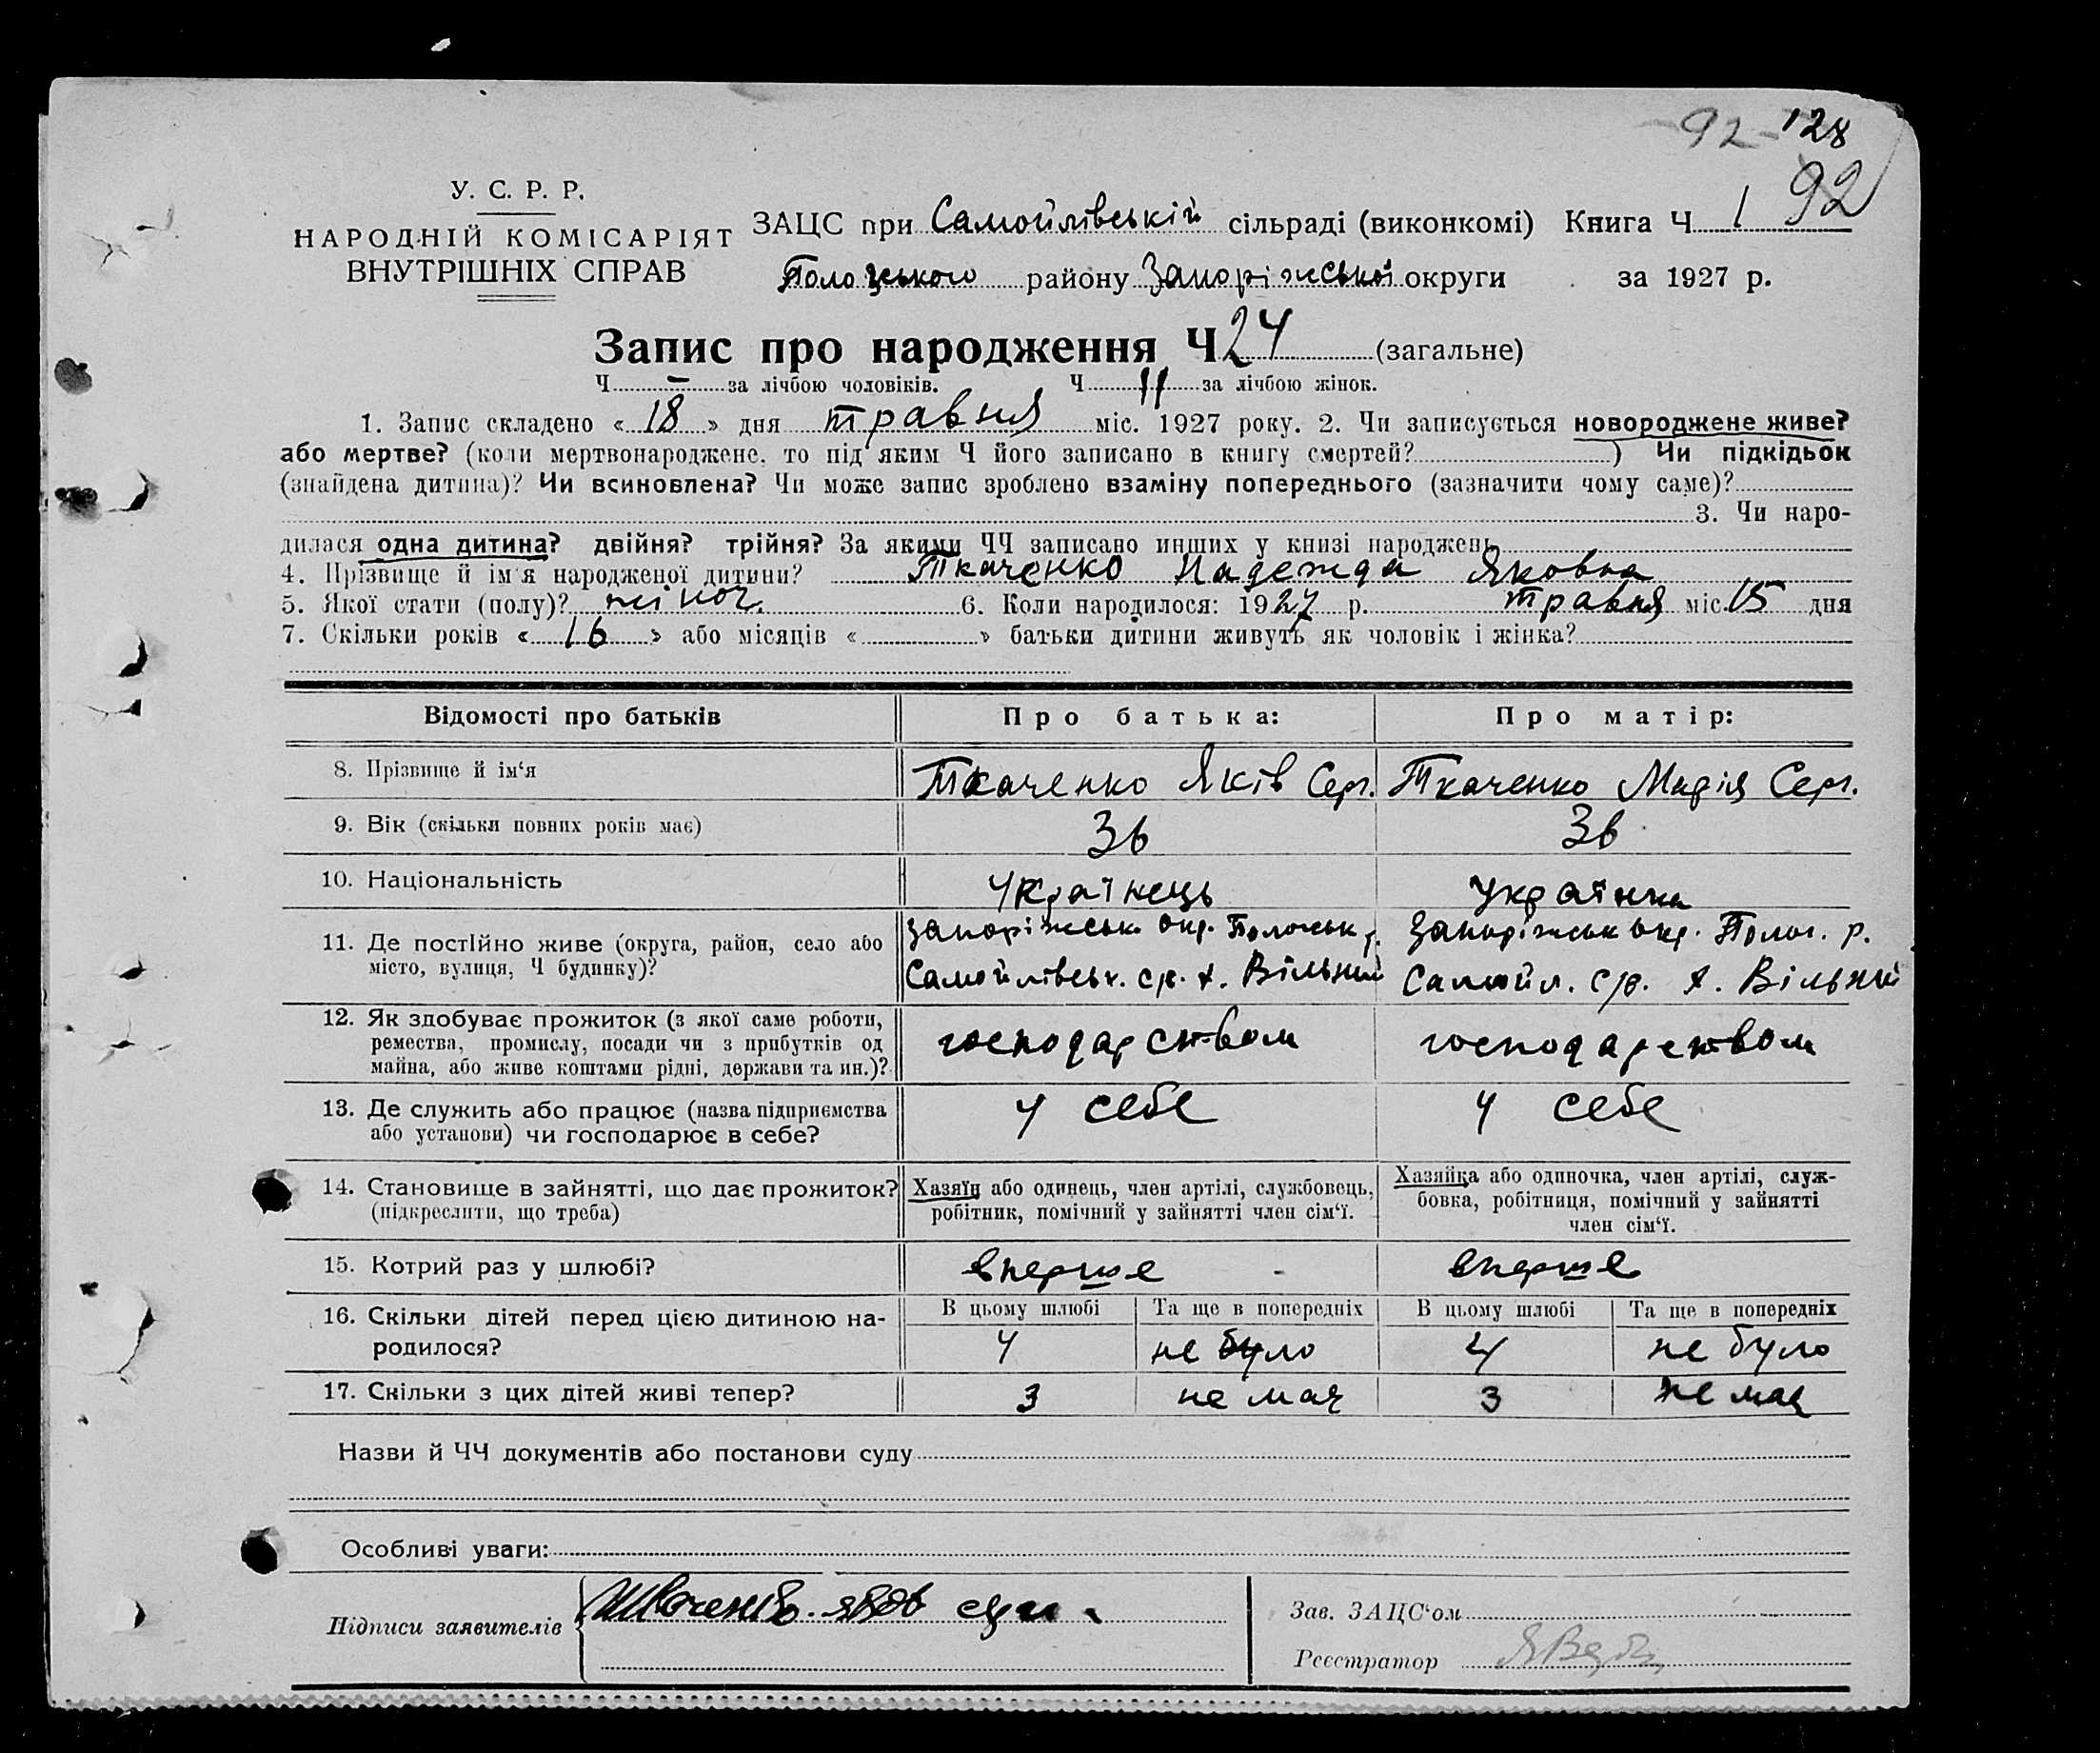 92 - 128
92
У. С. Р. Р.
НАРОДНІЙ КОМІСАРІЯТ
ВНУТРІШНІХ СПРАВ
ЗАЦС при Самойлівській сільраді (виконкомі) Книга Ч 1
Пологського району Запоріжської округи за 1927 р.
Запис про народження Ч 24 (загальне)
Ч — за лічбою чоловіків. Ч 11 за лічбою жінок.
1. Запис складено « 18 » дня травня міс. 1927 року. 2. Чи записується новороджене живе?
або мертве? (коли мертвонароджене, то під яким Ч його записано в книгу смертей? ) Чи підкідьок
(знайдена дитина)? Чи всиновлена? Чи може запис зроблено взаміну попереднього (зазначити чому саме)?
3. Чи наро-
дилася одна дитина? двійня? трійня? За якими ЧЧ записано инших у книзі народжень
4. Прізвище й ім'я народженої дитини? Ткаченко Надежда Яковна
5. Якої стати (полу)? жіноч. 6. Коли народилося: 1927 р. травня міс. 15 дня
7. Скільки років « 16 » або місяців « » батьки дитини живуть як чоловік і жінка?
Відомості про батьків Про батька: Про матір:
8. Прізвище й ім‘я Ткаченко Яків Серг. Ткаченко Марія Серг.
9. Вік (скільки повних років має) 36 36
10. Національність Українець Українка
11. Де постійно живе (округа, район, село або Запоріжськ. окр. Пологськ р. Запоріжськ окр. Полог. р.
місто, вулиця, Ч будинку)? Самойлівськ. с/р. х. Вільний Самойл. с/р. х. Вільний
12. Як здобуває прожиток (з якої саме роботи,
ремества, промислу, посади чи з прибутків од господарством господарством
майна, або живе коштами рідні, держави та ин.)?
13. Де служить або працює (назва підприємства у себе у себе
або установи) чи господарює в себе?
14. Становище в зайнятті, що дає прожиток? Хазяїн або одинець, член артілі, службовець, Хазяйка або одиночка, член артілі, служ-
(підкреслити, що треба) робітник, помічний у зайнятті член сім‘ї. бовка, робітниця, помічний у зайнятті
член сім‘ї.
15. Котрий раз у шлюбі? вперше - вперше
16. Скільки дітей перед цією дитиною на- В цьому шлюбі Та ще в попередніх В цьому шлюбі Та ще в попередніх
родилося? 4 не було 4 не було
17. Скільки з цих дітей живі тепер? 3 не має 3 не має
Назви й ЧЧ документів або постанови суду
Особливі уваги:
Підписи заявителів
Зав. ЗАЦС‘ом
Реєстратор